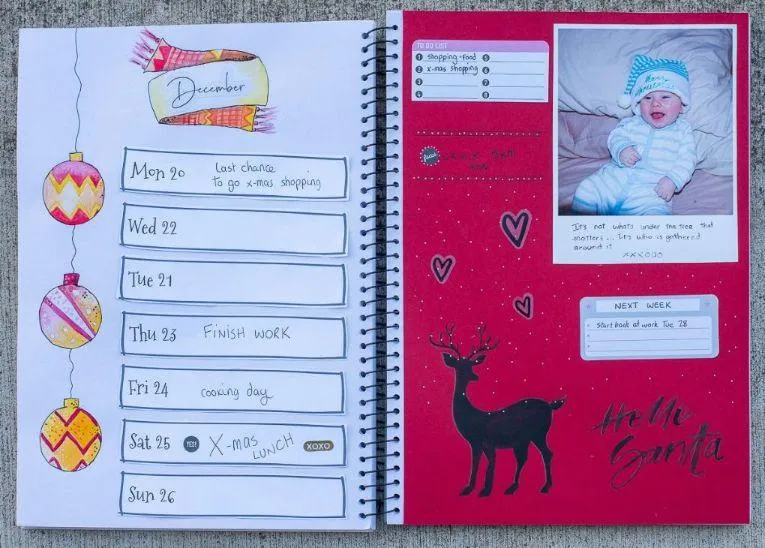 December
Mon 20
Last chance
to go x-mas shopping
Wed 22
Tue 21
Thu 23
FINISH WORK
Fri 24
cooking day
Sat 25
YES!
X-mas
LUNCH
XOXO
Sun 26
TO DO LIST
1 shopping-food
2 x-mas shopping
3
4
5
6
7
8
Merry
Christmas
It's not what's under the tree that
matters... It's who is gathered
around it
XXXOOO
NEXT WEEK
start back at work Tue 28
Hello
Santa